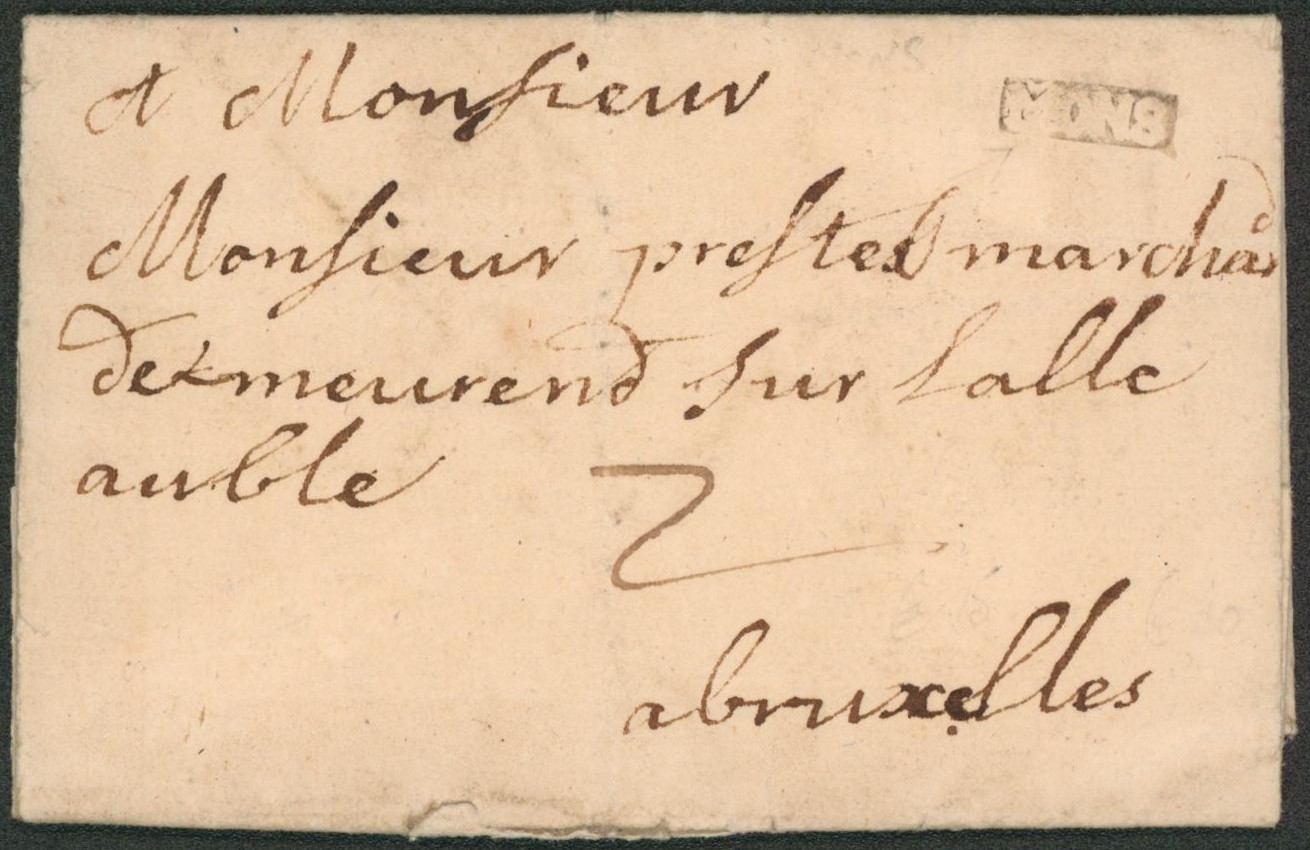 A Monsieur
MONS
Monsieur prestel marchād
demeurend sur lalle
auble
2
abruxelles